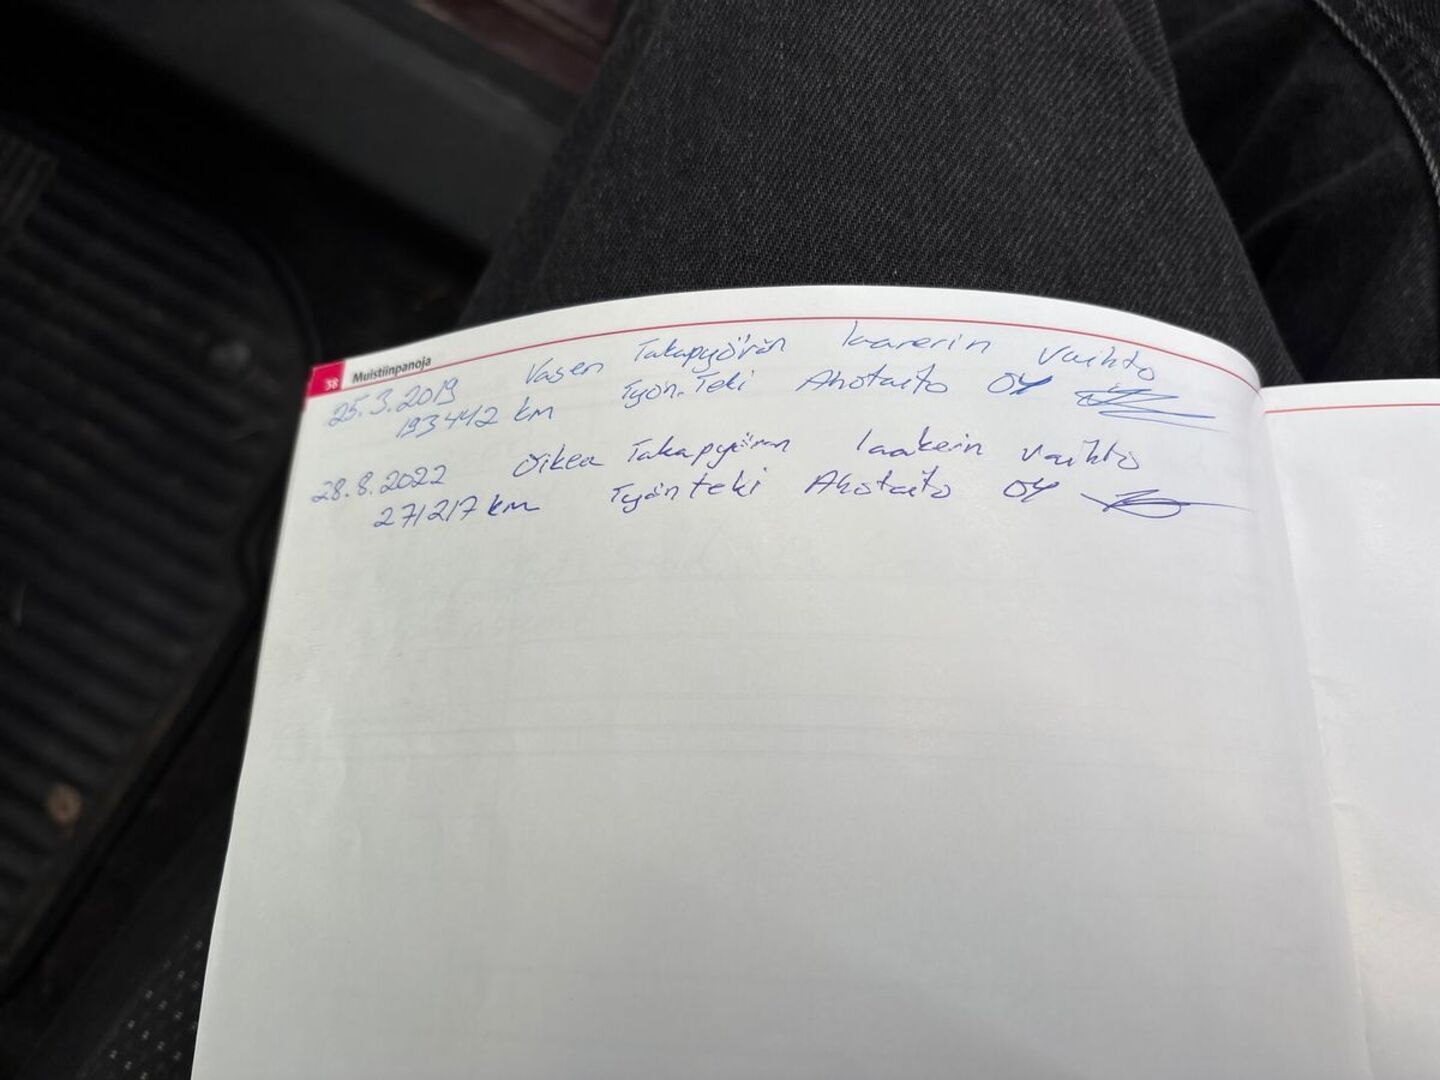 38 Muistiinpanoja
25.3.2019 Vasen Takapyörän laarerin vaihto
193442 km Työn.Teki Ahotaito OY
28.8.2022 Oikea Takapyörän laakerin vaihto
271217 km Työnteki Ahotaito OY